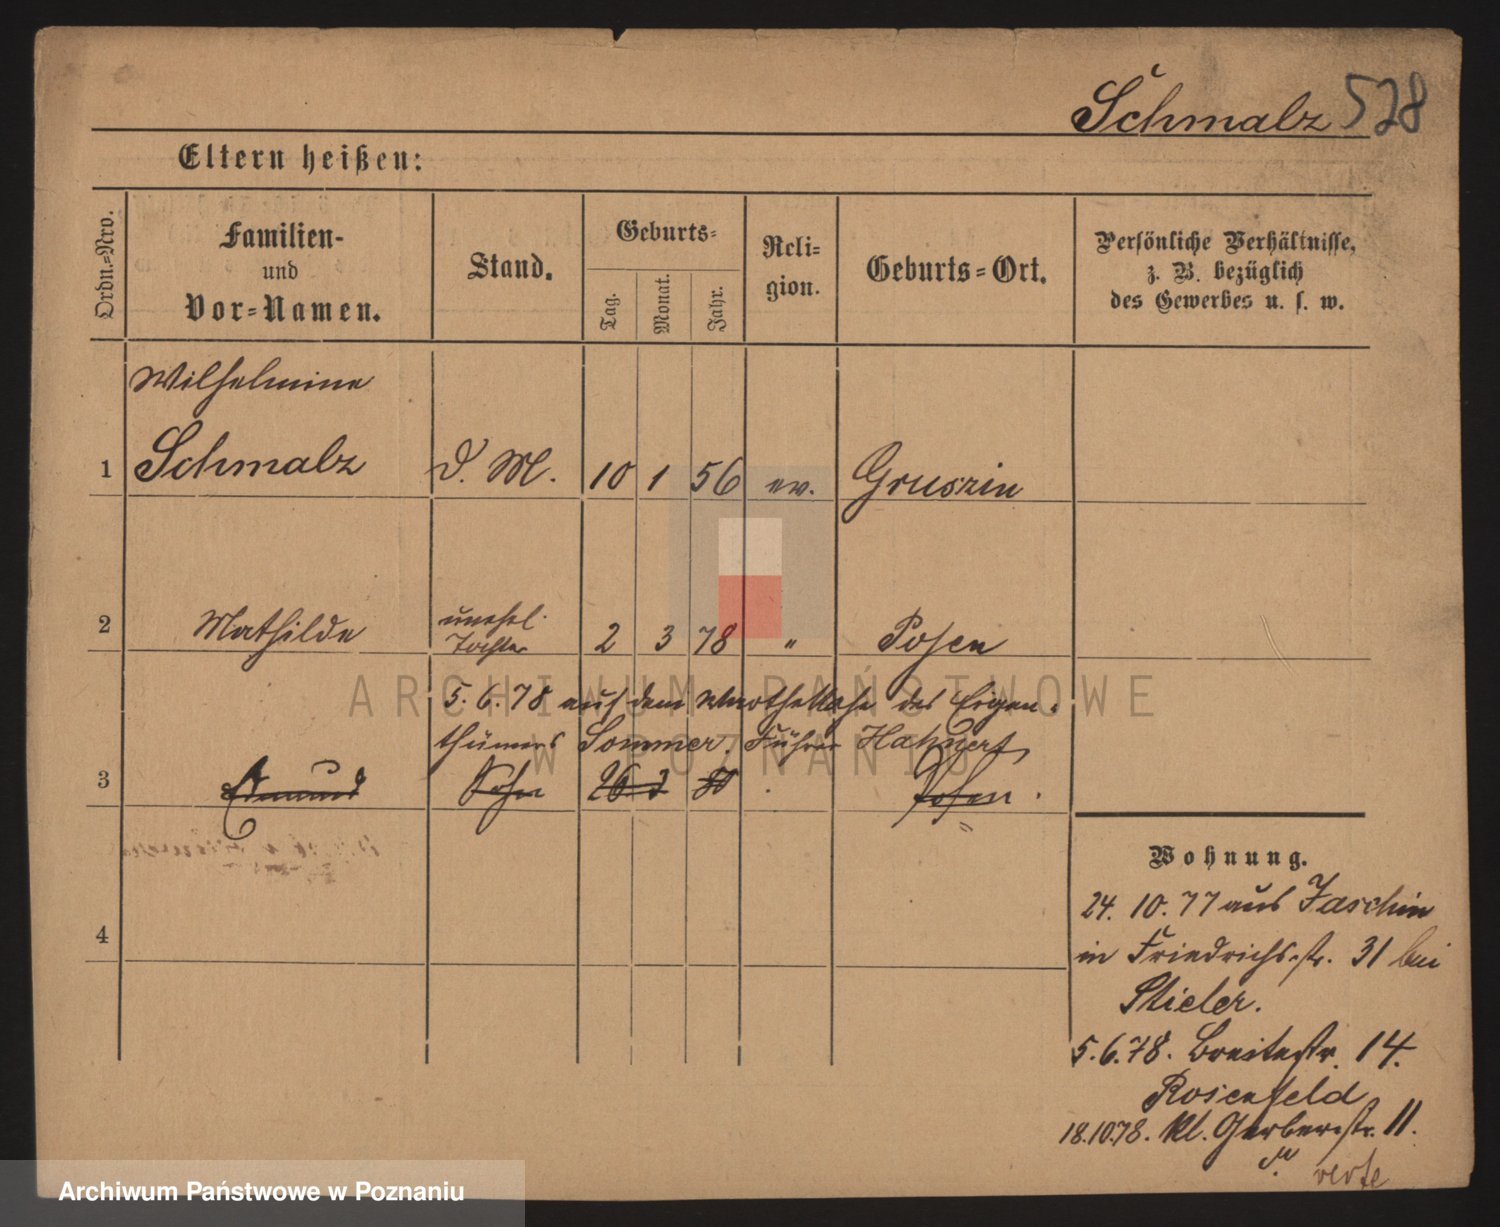 Schmalz 528
Eltern heißen:
Ordn.=Nro.
Familien-
und
Vor=Namen.
Stand.
Geburts=
Tag.
Monat.
Jahr.
Reli=
gion.
Geburts=Ort.
Persönliche Verhältnisse,
z. B. bezüglich
des Gewerbes u. s. w.
Wilhelmine
1 Schmalz d. M. 10 1 56 ev. Gruszin
unehl.
2 Mathilde Tochter 2 3 78 " Posen
5. 6. 78 auf dem des Eigen-
thümers Sommer. Führer
3 Edmund Sohn 26 3 80 Posen
4
Wohnung.
24. 10. 77 aus Jaschin
in Friedrichs-str. 31 bei
Stieler.
5. 6. 78. Breitestr. 14.
Rosenfeld
18.10.78. kl. Gerberstr. 11.
verte
ARCHIWUM PAŃSTWOWE
W POZNANIU
Archiwum Państwowe w Poznaniu